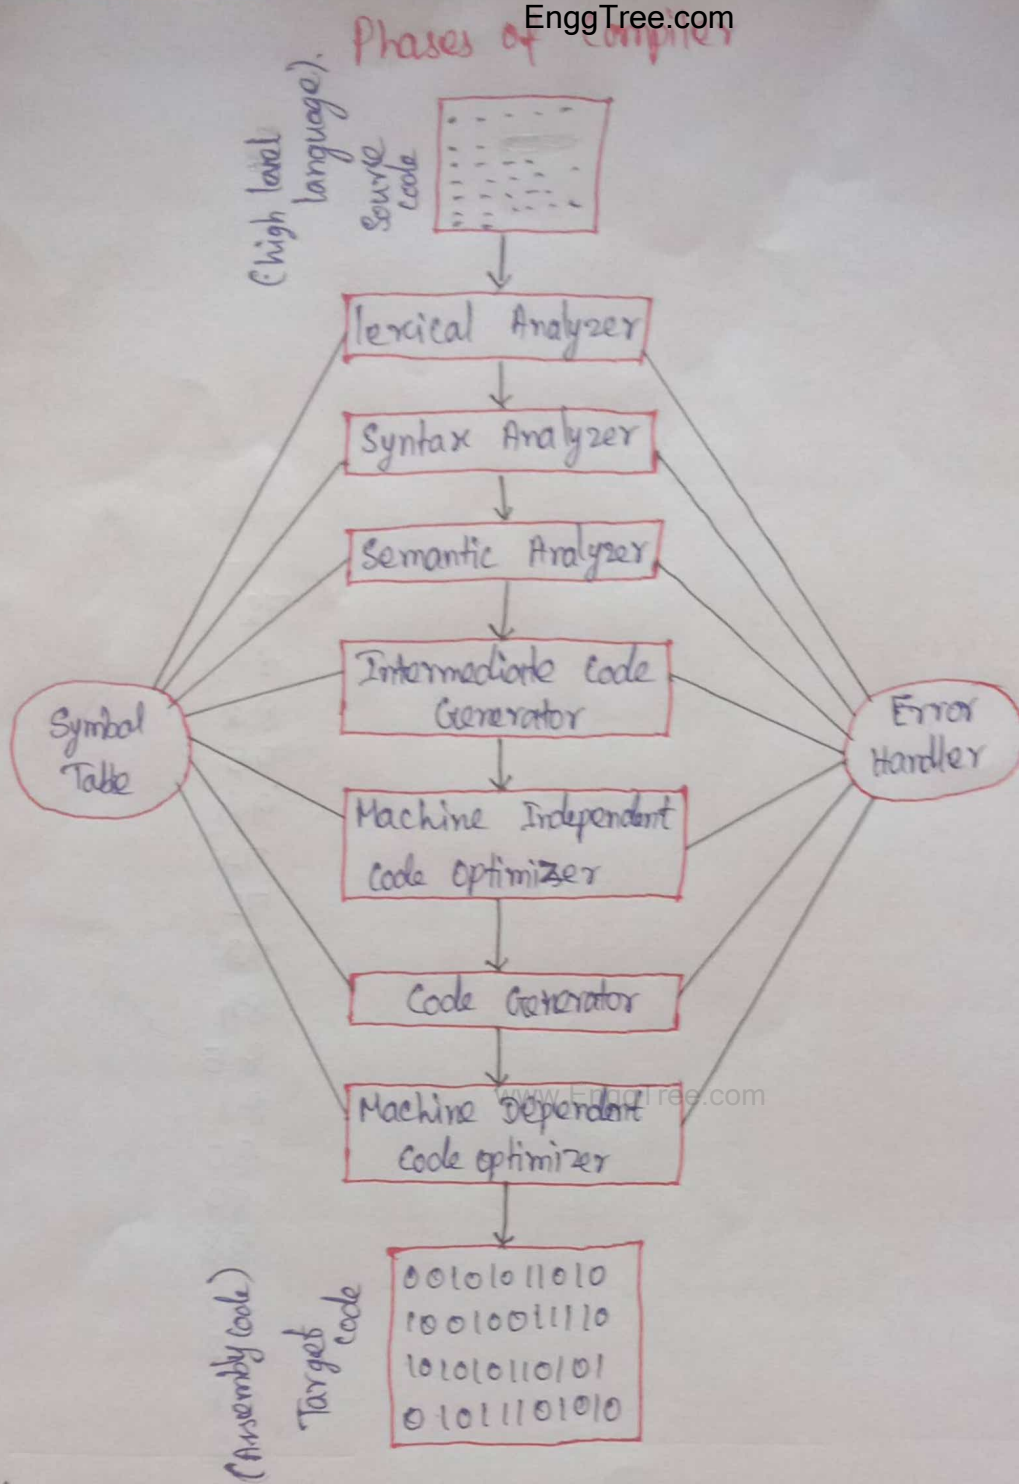 EnggTree.com
Phases of Compiler
(high level
language).
Source
code
lexical Analyzer
Syntax Analyzer
Semantic Analyzer
Intermediate Code
Generator
Symbol
Table
Error
Handler
Machine Independent
Code Optimizer
Code Generator
www.EnggTree.com
Machine Dependent
Code optimizer
(Assembly code)
Target
code
00101011010
10010011110
101010110101
010111101010